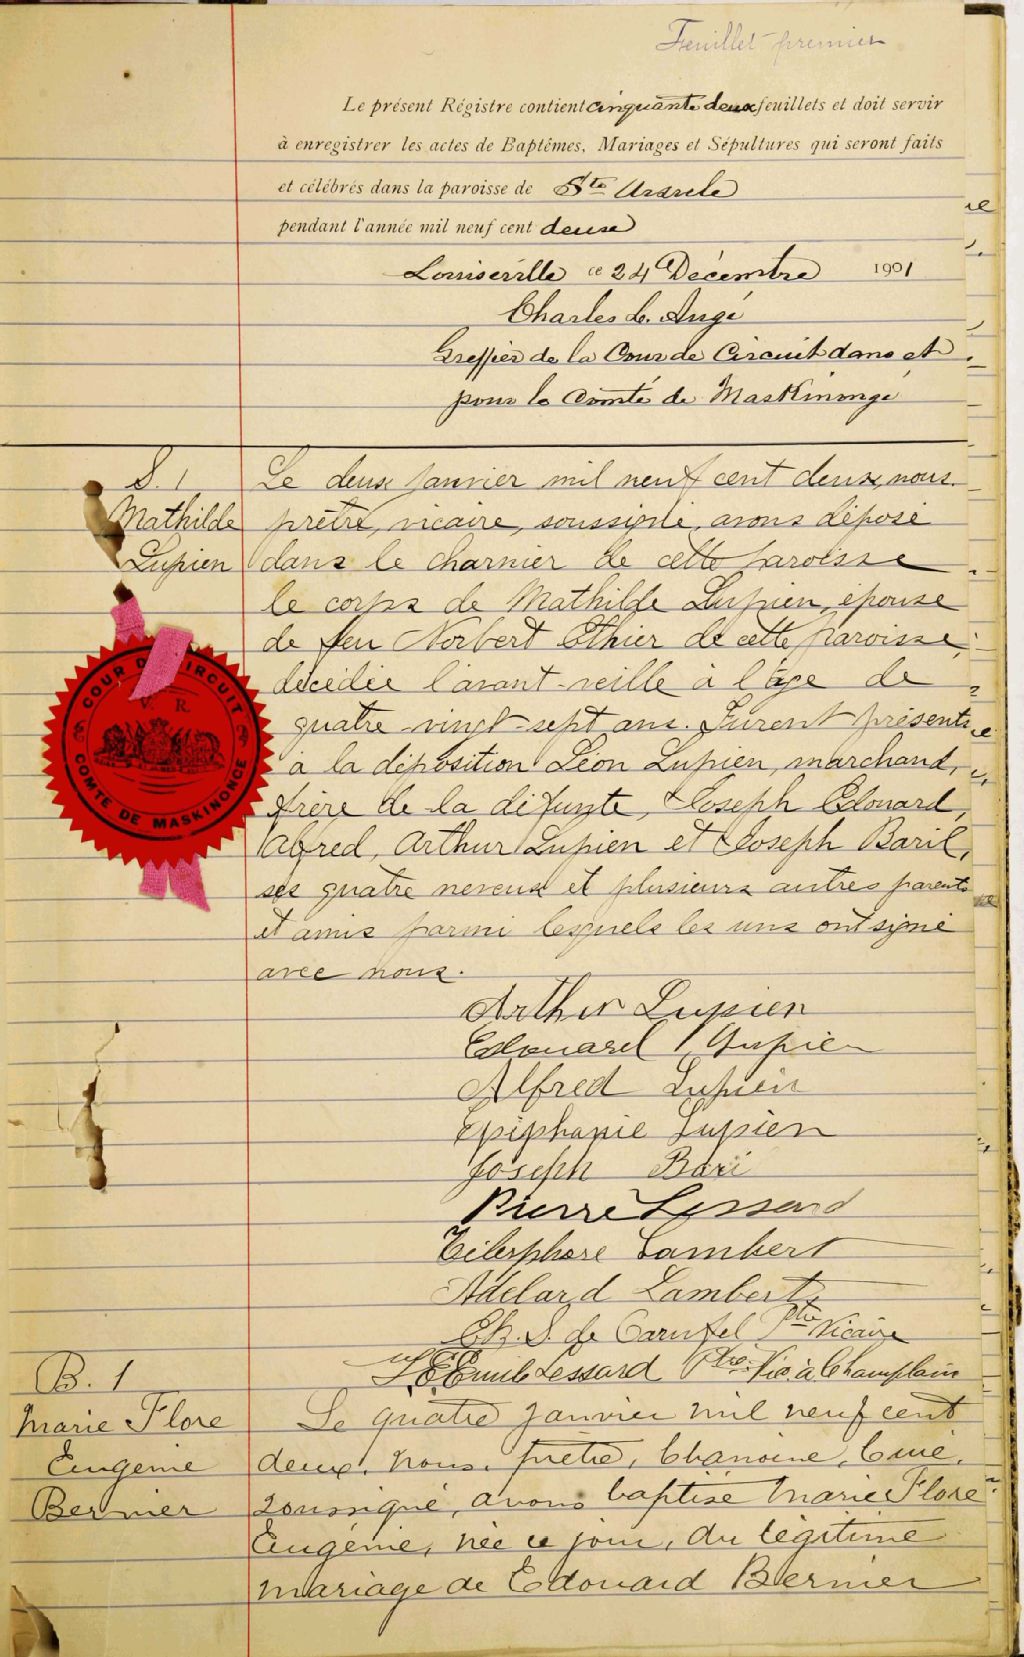 Feuillet premier
Le présent Régistre contient cinquante deux feuillets et doit servir
à enregistrer les actes de Baptêmes, Mariages et Sépultures qui seront faits
et célébrés dans la paroisse de Ste Ursule
pendant l'année mil neuf cent deux
Louiseville ce 24 Décembre 1901
Charles L. Augé
Greffier de la Cour de Circuit dans et
pour le Comté de Maskinongé
S. 1
Mathilde
Lupien
Le deux janvier mil neuf cent deux, nous
prêtre, vicaire, soussigné, avons déposé
dans le charnier de cette paroisse
le corps de Mathilde Lupien, épouse
de feu Norbert Ethier de cette paroisse,
décédée l'avant-veille à l'âge de
quatre-vingt-sept ans. Furent présents
à la déposition Léon Lupien, marchand,
frère de la défunte, Joseph Edouard,
Alfred, Arthur Lupien et Joseph Baril,
ses quatre neveux et plusieurs autres parents
et amis parmi lesquels les uns ont signé
avec nous.
COUR DE CIRCUIT
V. R.
COMTE DE MASKINONGE
Arthur Lupien
Edouard Lupien
Alfred Lupien
Epiphanie Lupien
Joseph Bari
Pierre Lessard
Télesphore Lambert
Adelard Lambert
Ch. S. de Carufel Ptre Vicaire
Emile Lessard Ptre Vic. à Champlain
B. 1
Marie Flore
Eugénie
Bernier
Le quatre janvier mil neuf cent
deux, nous, prêtre, Chanoine, Curé,
soussigné, avons baptisé Marie Flore
Eugénie, née ce jour, du légitime
mariage de Edouard Bernier